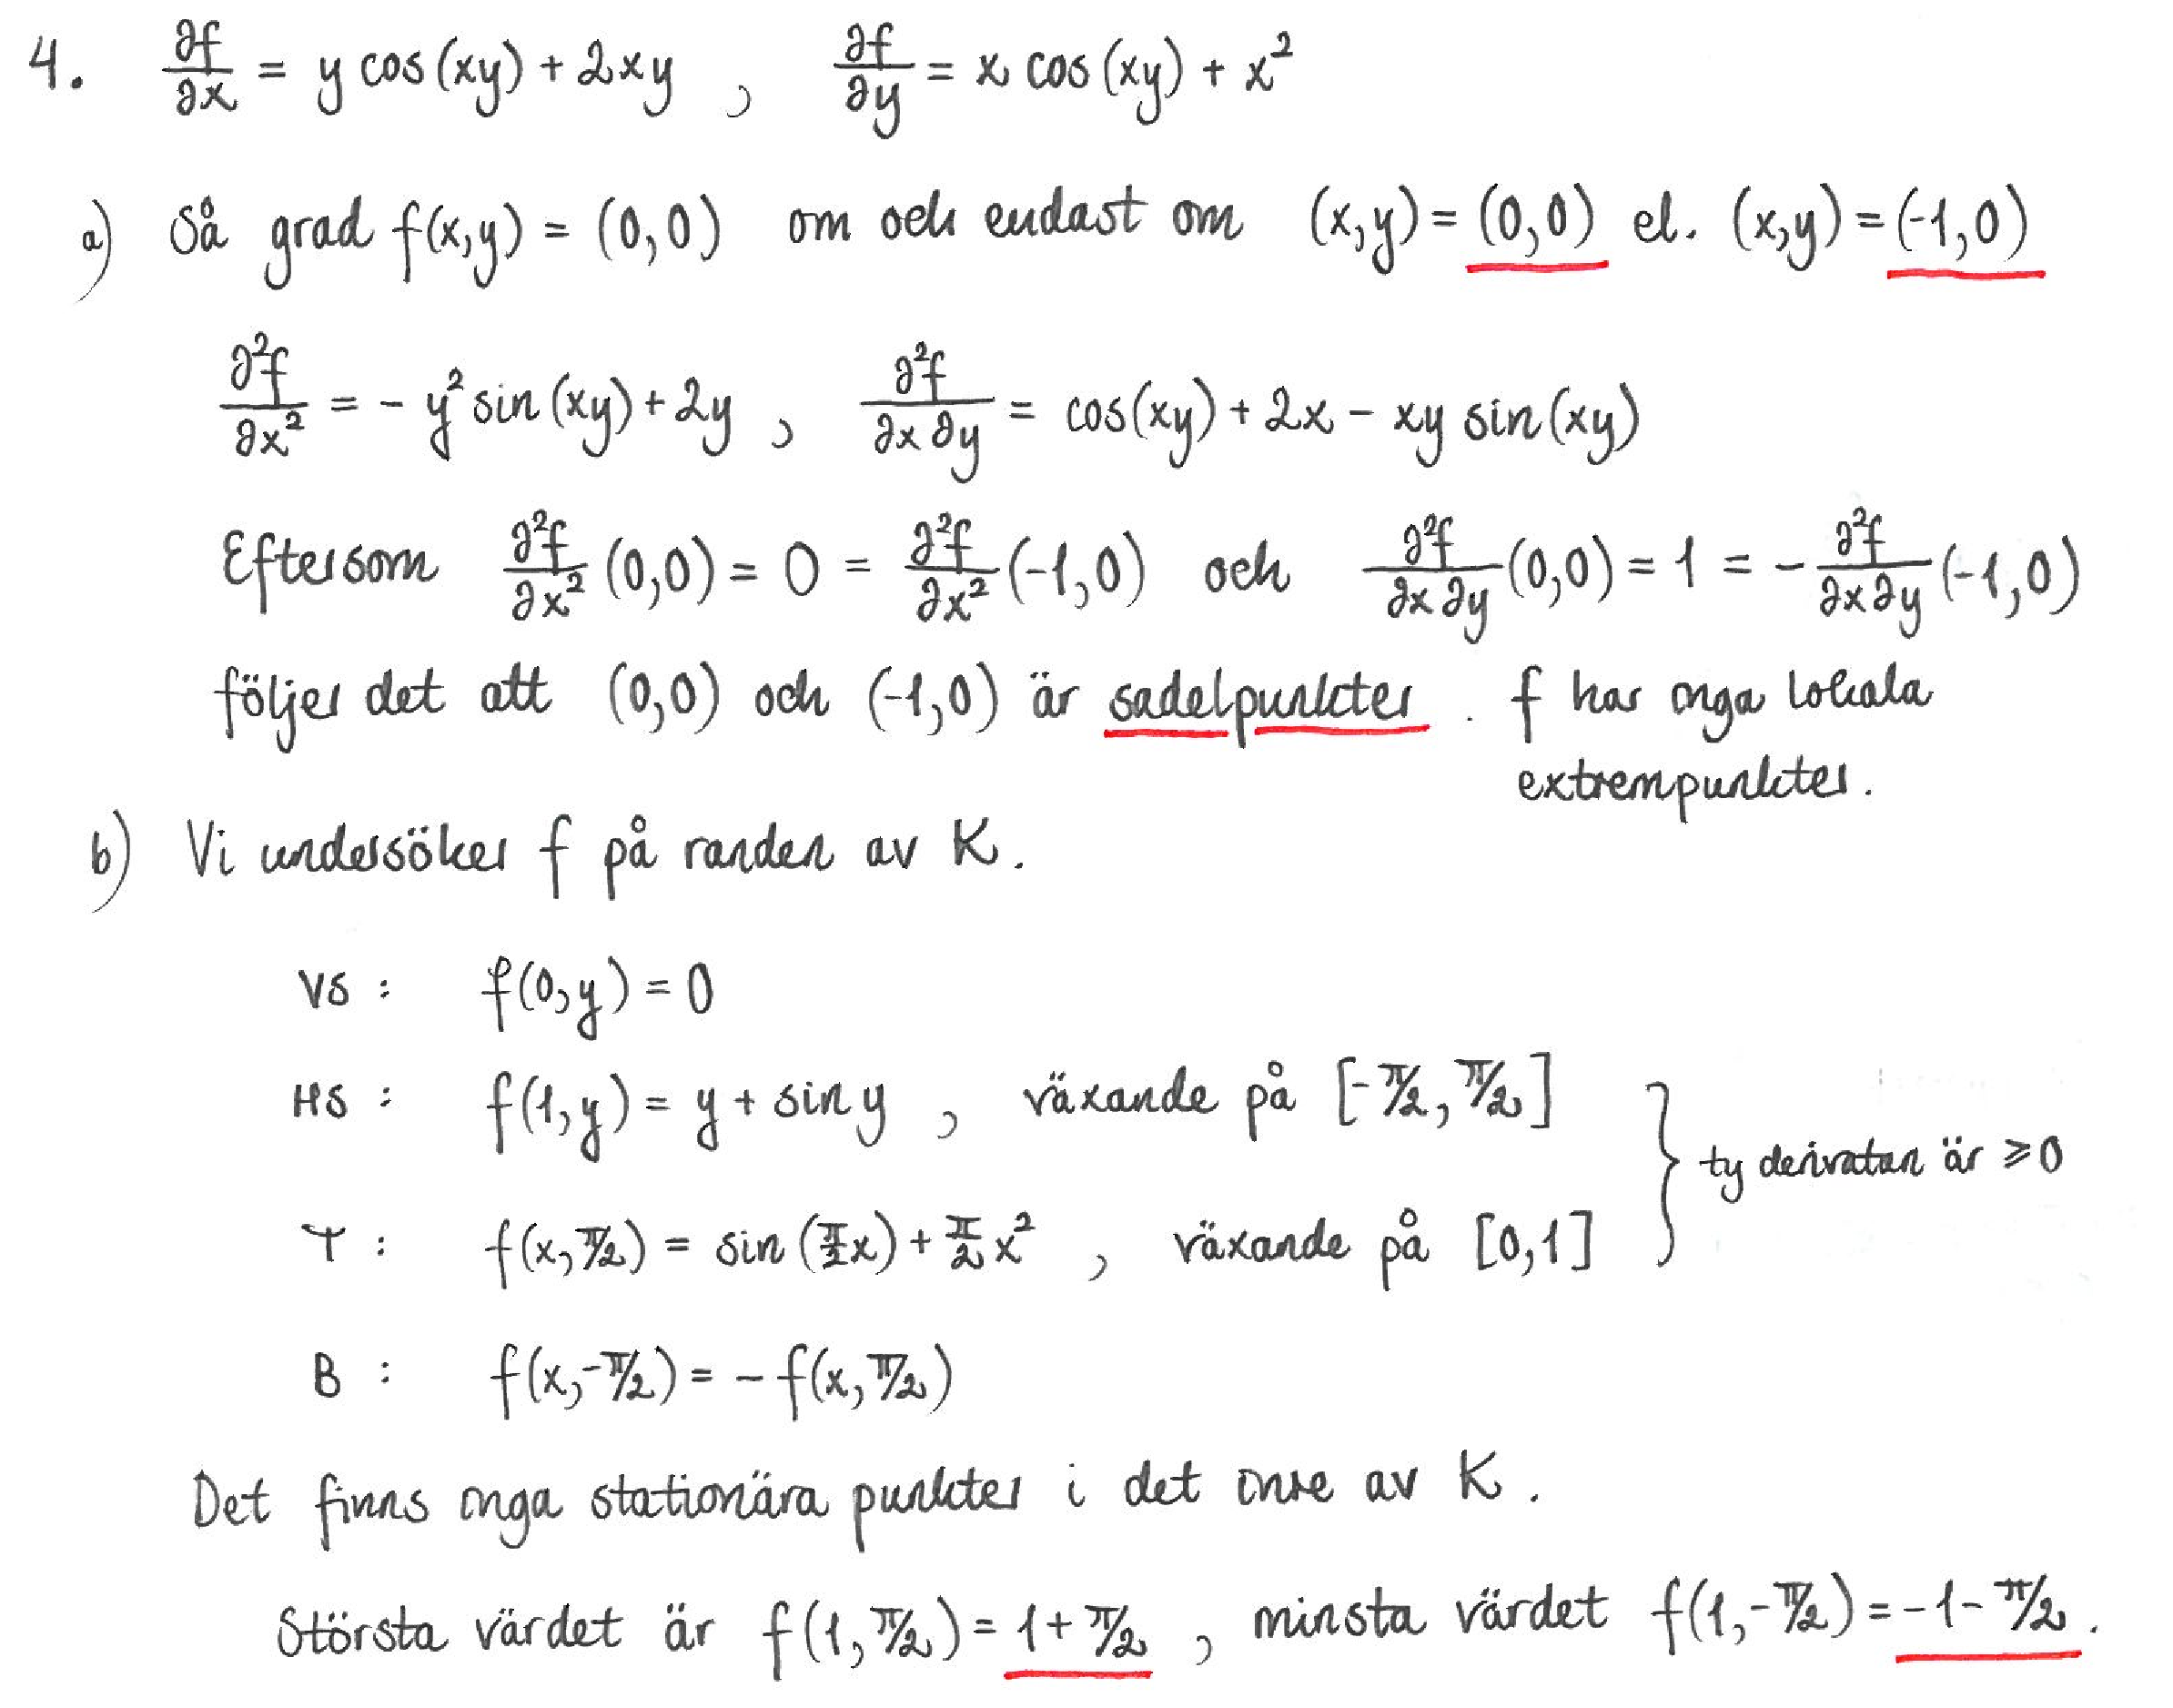 4. ∂f/∂x = y cos(xy) + 2xy , ∂f/∂y = x cos(xy) + x²
a) Så grad f(x,y) = (0,0) om och endast om (x,y) = (0,0) el. (x,y) = (-1,0)
∂²f/∂x² = - y² sin(xy) + 2y , ∂²f/∂x∂y = cos(xy) + 2x - xy sin(xy)
Eftersom ∂²f/∂x² (0,0) = 0 = ∂²f/∂x² (-1,0) och ∂²f/∂x∂y (0,0) = 1 = - ∂²f/∂x∂y (-1,0)
följer det att (0,0) och (-1,0) är sadelpunkter . f har inga lokala
extrempunkter.
b) Vi undersöker f på randen av K.
VS : f(0,y) = 0
HS : f(1,y) = y + sin y , växande på [-π/2, π/2]
ty derivatan är ≥ 0
T : f(x, π/2) = sin(π/2 x) + π/2 x² , växande på [0,1]
B : f(x, -π/2) = - f(x, π/2)
Det finns inga stationära punkter i det inre av K .
Största värdet är f(1, π/2) = 1 + π/2 , minsta värdet f(1, -π/2) = -1 - π/2 .